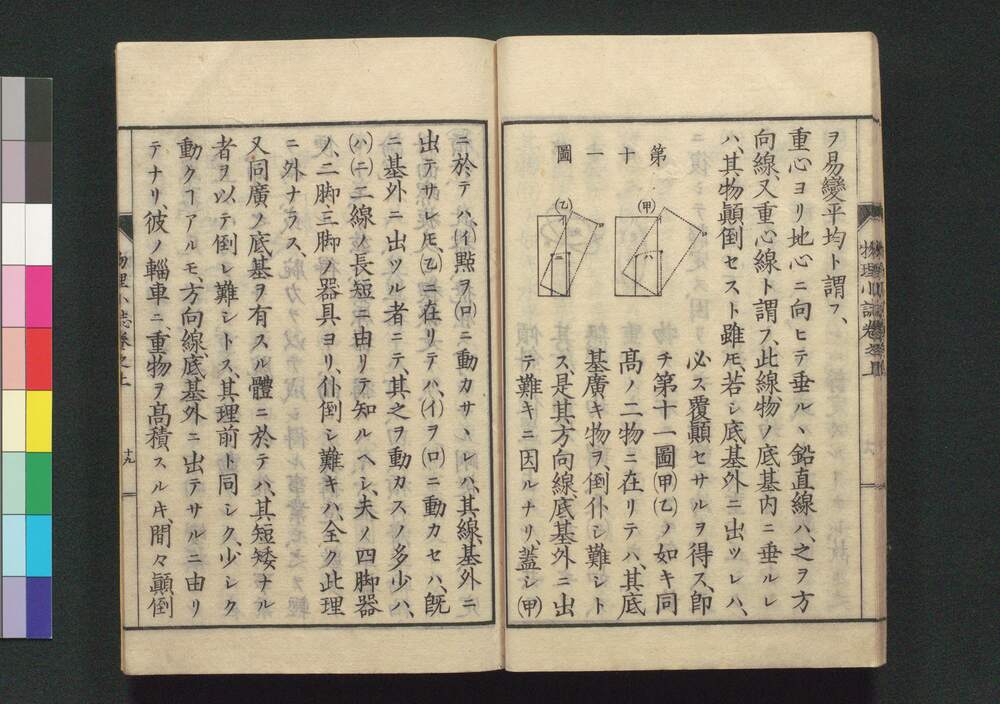 ヲ易變平均ト謂フ、
重心ヨリ地心ニ向ヒテ垂ル丶鉛直線ハ、之ヲ方
向線、又重心線ト謂フ、此線、物ノ底基内ニ垂ルレ
ハ、其物顚倒セスト雖モ、若シ底基外ニ出ツレハ、
必ス覆顚セサルヲ得ス、卽
チ第十一圖㈙㈚ノ如キ同
髙ノ二物ニ在リテハ、其底
基廣キ物ヲ、倒仆シ難シト
ス、是其方向線底基外ニ出
テ難キニ因ルナリ、蓋シ㈙
第十一圖
(甲)
(乙)
イ
ロ
ハ
物理小誌卷之上
ニ於テハ、(イ)點ヲ(ロ)ニ動カサヽレハ、其線、基外ニ
出テサレモ、(乙)ニ在リテハ、(イ)ヲ(ロ)ニ動カセハ、旣
ニ基外ニ出ツル者ニテ、其之ヲ動カスノ多少ハ、
(ハ)(ニ)二線ノ長短ニ由リテ知ルヘシ、夫ノ四脚器
ノ、二脚三脚ノ器具ヨリ、仆倒シ難キハ、全ク此理
ニ外ナラス、
又同廣ノ底基ヲ有スル體ニ於テハ、其短矮ナル
者ヲ以テ倒レ難シトス、其理前ト同シク、少シク
動クヿアルモ、方向線底基外ニ出テサルニ由リ
テナリ、彼ノ輜車ニ、重物ヲ髙積スルキ、間々顚倒
物理小誌卷之上
十九